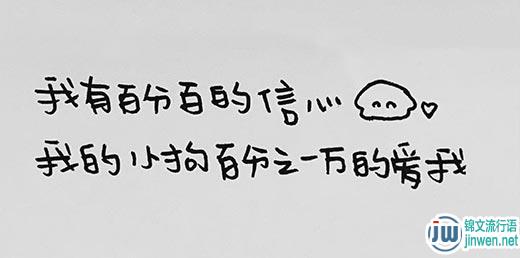 我有百分百的信心
我的小狗百分之一万的爱我
锦文流行语
jinwen.net